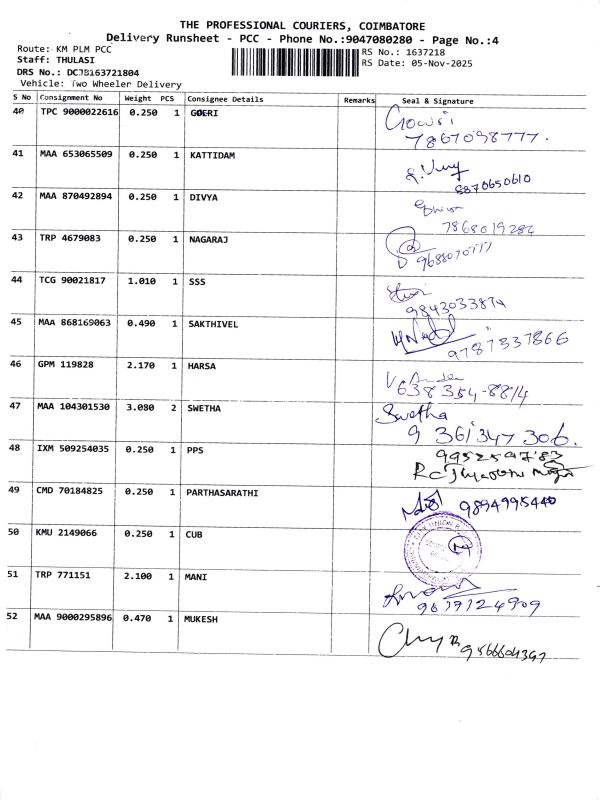 THE PROFESSIONAL COURIERS, COIMBATORE
Delivery Runsheet - PCC - Phone No.:9047080280 - Page No.:4
Route: KM PLM PCC
RS No.: 1637218
Staff: THULASI
RS Date: 05-Nov-2025
DRS No.: DCJB163721804
Vehicle: Two Wheeler Delivery
S No Consignment No Weight PCS Consignee Details Remarks Seal & Signature
40 TPC 9000022616 0.250 1 Gowri
7867098777.
41 MAA 653065509 0.250 1 KATTIDAM
8870650610
42 MAA 870492894 0.250 1 DIVYA
7868019284
43 TRP 4679083 0.250 1 NAGARAJ
9688070777
44 TCG 90021817 1.010 1 SSS
45 MAA 868169063 0.490 1 SAKTHIVEL
9787337866
46 GPM 119828 2.170 1 HARSA
638354-8814
47 MAA 104301530 3.080 2 SWETHA Swetha
9 361347 306.
48 IXM 509254035 0.250 1 PPS
49 CMD 70184825 0.250 1 PARTHASARATHI 9894995440
50 KMU 2149066 0.250 1 CUB
51 TRP 771151 2.100 1 MANI
9617124909
52 MAA 9000295896 0.470 1 MUKESH